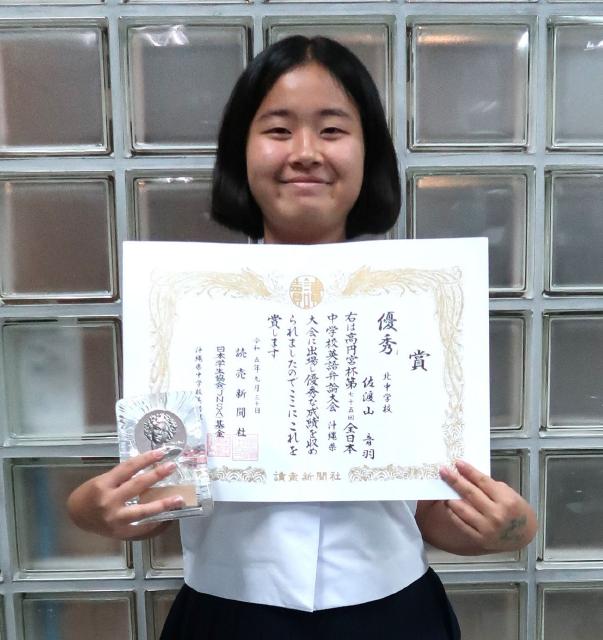 優秀賞
北中学校
佐渡山 音羽
右は高円宮杯第七十五回全日本
中学校英語弁論大会 沖縄県
大会に出場し優秀な成績を収め
られましたのでここにこれを
賞します
令和五年九月三十日
読売新聞社
日本学生協会(JNSA)基金
沖縄県中学校
讀売新聞社